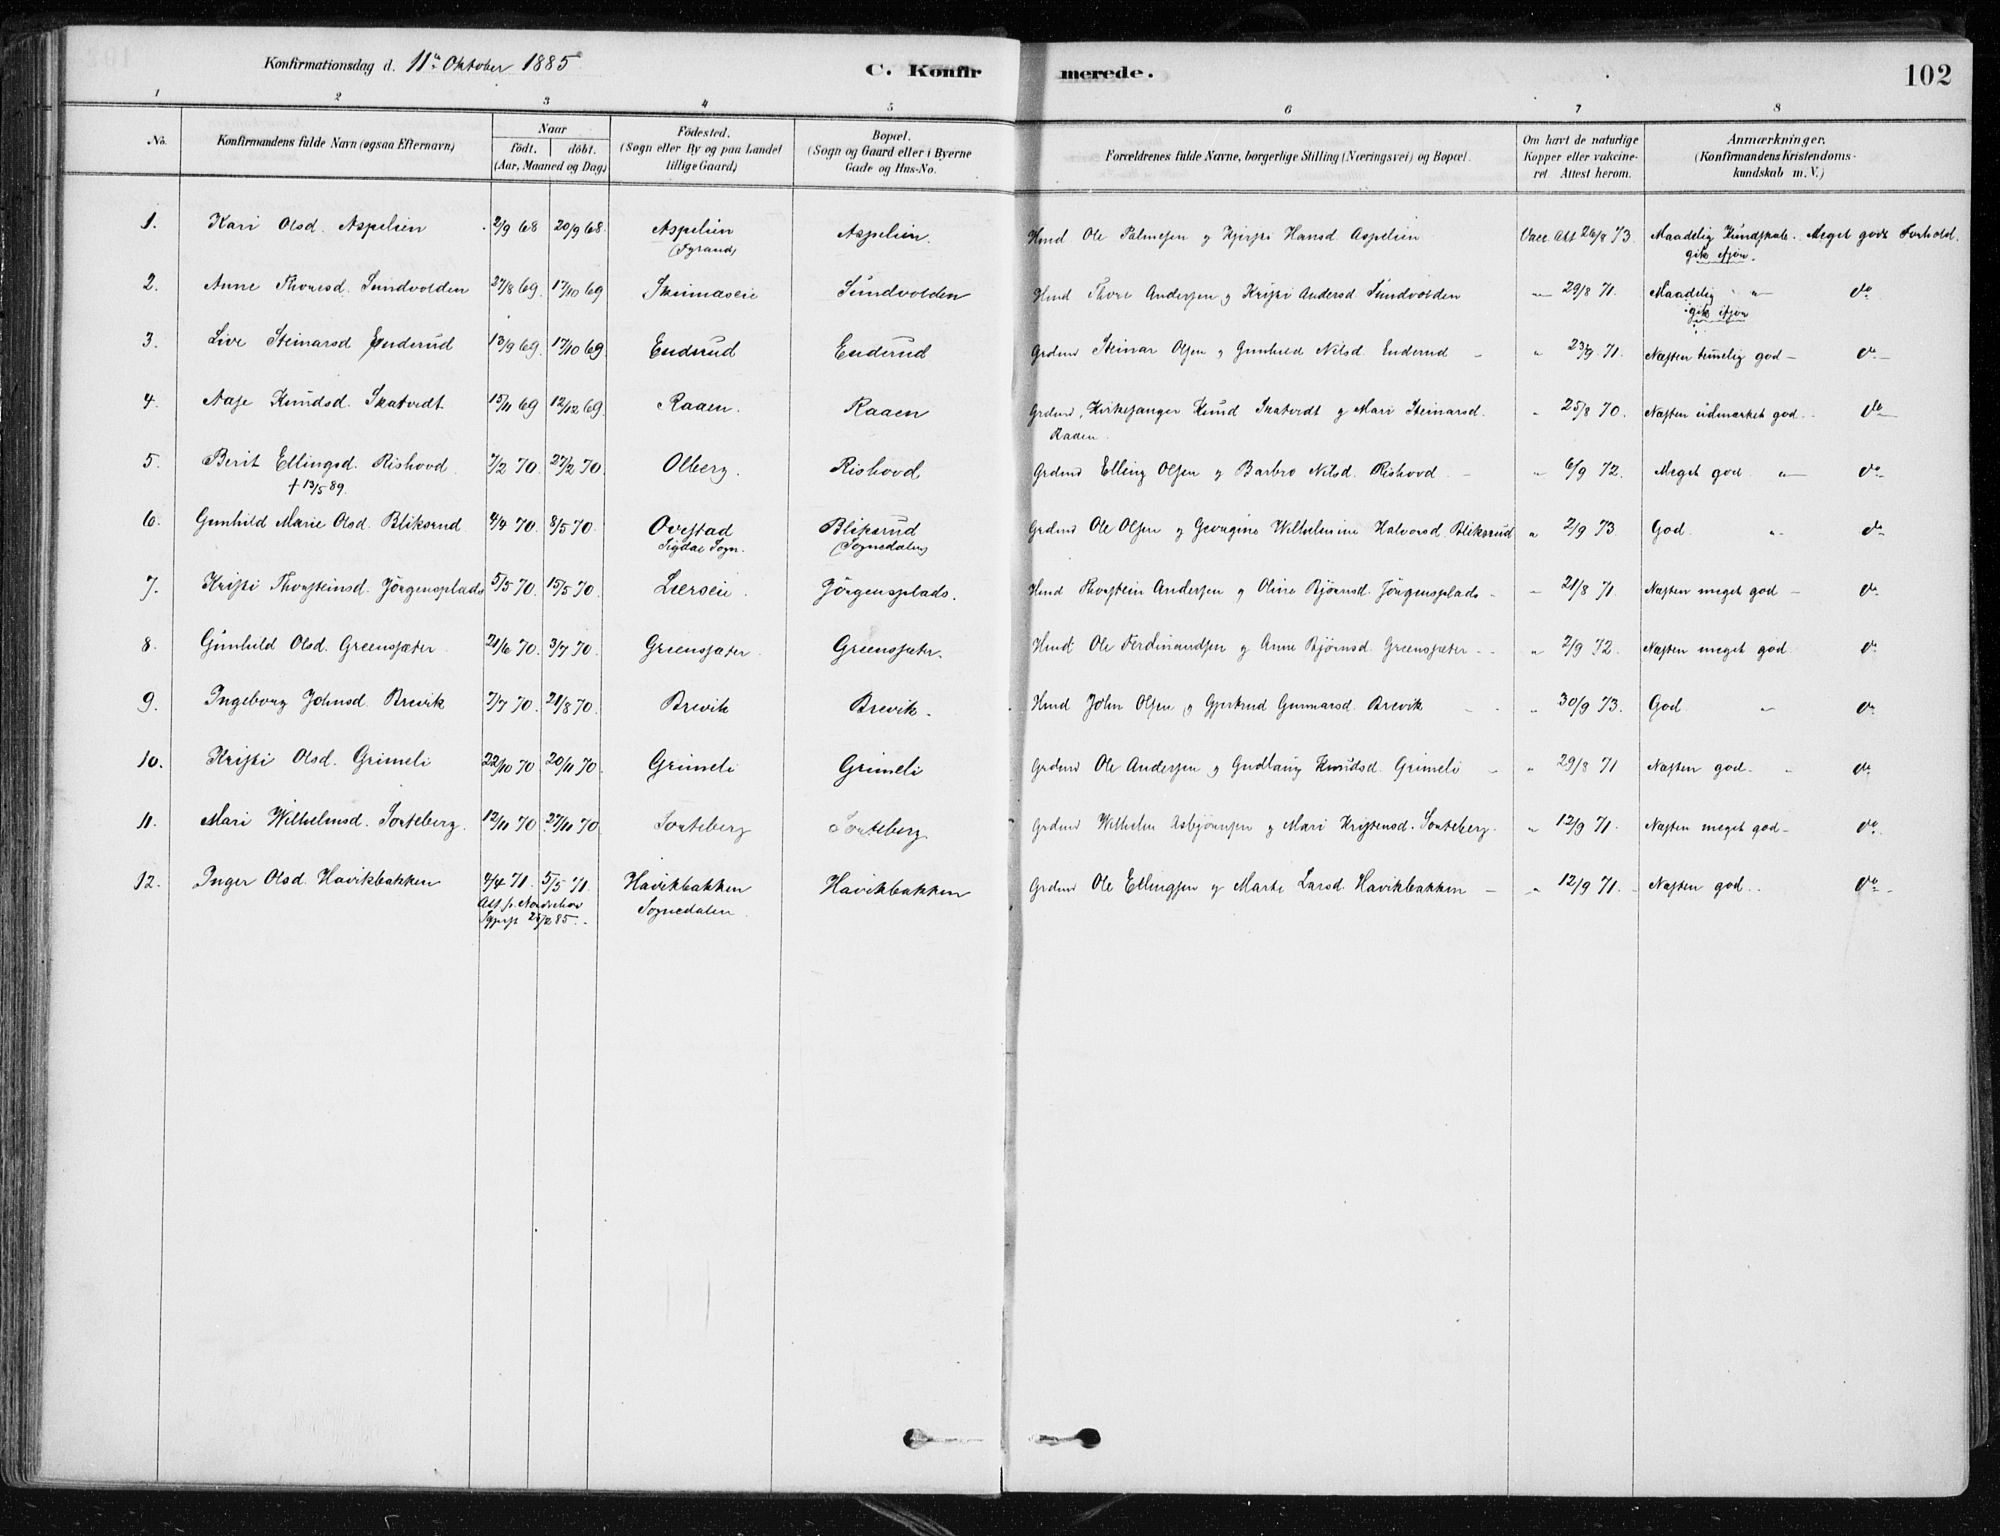 Konfirmationsdag d. 11te Oktober 1885
C. Konfirmerede.
102
1 2 3 4 5 6 7 8
No. Konfirmandens fulde Navn (ogsaa Efternavn) Naar födt. döbt. (Aar, Maaned og Dag) Födested. (Sogn eller By og paa Landet tillige Gaard) Bopæl. (Sogn og Gaard eller i Byerne Gade og Hus-No. Forældrenes fulde Navne, borgerlige Stilling (Næringsvei) og Bopæl. Om havt de naturlige Kopper eller vakcineret. Attest herom. Anmærkninger. (Konfirmandens Kristendomskundskab m. V.)
1. Kari Olsd. Aspelien 2/9 68 20/9 68. Aspelien Aspelien. Hmd Ole Palmesen og Kjersti Hansd. Aspelien Vacc. Att 26/8 73. Maadelig Kundskab. Meget godt Forhold.
2. Anne Thoresd. Sundvolden 27/8 69. 17/10 69 Sundvolden Hmd Thore Andersen og Kristi Andersd. Sundvolden " 29/8 71. Maadelig " do
3. Live Steinarsd Enderud 13/9 69. 17/10 69 Enderud Enderud Grdmd Steinar Olsen og Gunhild Nilsd. Enderud " 23/9 71. Næsten temelig god do
4. Aase Knudsd. Skatvedt 15/11 69 12/12 69. Raaen. Raaen Grdmd, Kirkesanger Knud Skatvedt og Mari Steinarsd. Raaen. " 25/8 70. Næsten udmærket god. do
5. Berit Ellingsd. Rishovd 7/2 70. 27/2 70. Olberg. Rishovd Grdmd Elling Olsen og Barbro Nilsd. Rishovd " 6/9 72. Meget god " do
† 13/5 89.
6. Gunhild Marie Olsd. Bliksrud 4/4 70. 8/5 70. Ovestad Bliksrud Grdmd Ole Olsen og Georgine Wilhelmine Halvorsd. Bliksrud " 2/9 73 God " do
Sigdal Sogn. (Sognedalen)
7. Kristi Thorsteinsd. Jörgensplads 5/5 70. 15/5 70. Leerseie. Jörgensplads. Hmd Thorstein Andersen og Oline Björnsd. Jörgensplads " 21/8 71 Næsten meget god do
8. Gunhild Olsd. Greensæter 21/6 70. 3/7 70. Greensæter. Greensæter. Hmd Ole Ferdinandsen og Anne Björnsd. Greensæter " 2/9 72. Næsten meget god do
9. Ingeborg Johnsd. Brevik 7/7 70. 21/8 70. Brevik Brevik. Hmd John Olsen og Gjertrud Gunnarsd. Brevik " 30/9 73. God " do
10. Kristi Olsd. Grimeli 22/10 70 20/11 70. Grimeli Grimeli Grdmd Ole Andersen og Gudlaug Knudsd. Grimeli " 29/8 71 Næsten god. do
11. Mari Wilhelmsd. Sorteberg. 12/11 70 27/11 70. Sorteberg Sorteberg Grdmd Wilhelm Asbjörnsen og Mari Kristensd. Sorteberg. " 12/9 71. Næsten meget god do
12. Inger Olsd. Havikbakken 4/4 71. 5/5 71. Havikbakken Havikbakken Grdmd Ole Ellingsen og Marte Larsd. Havikbakken " 12/9 71. Næsten god. do
Att. fr. Sognedalen.